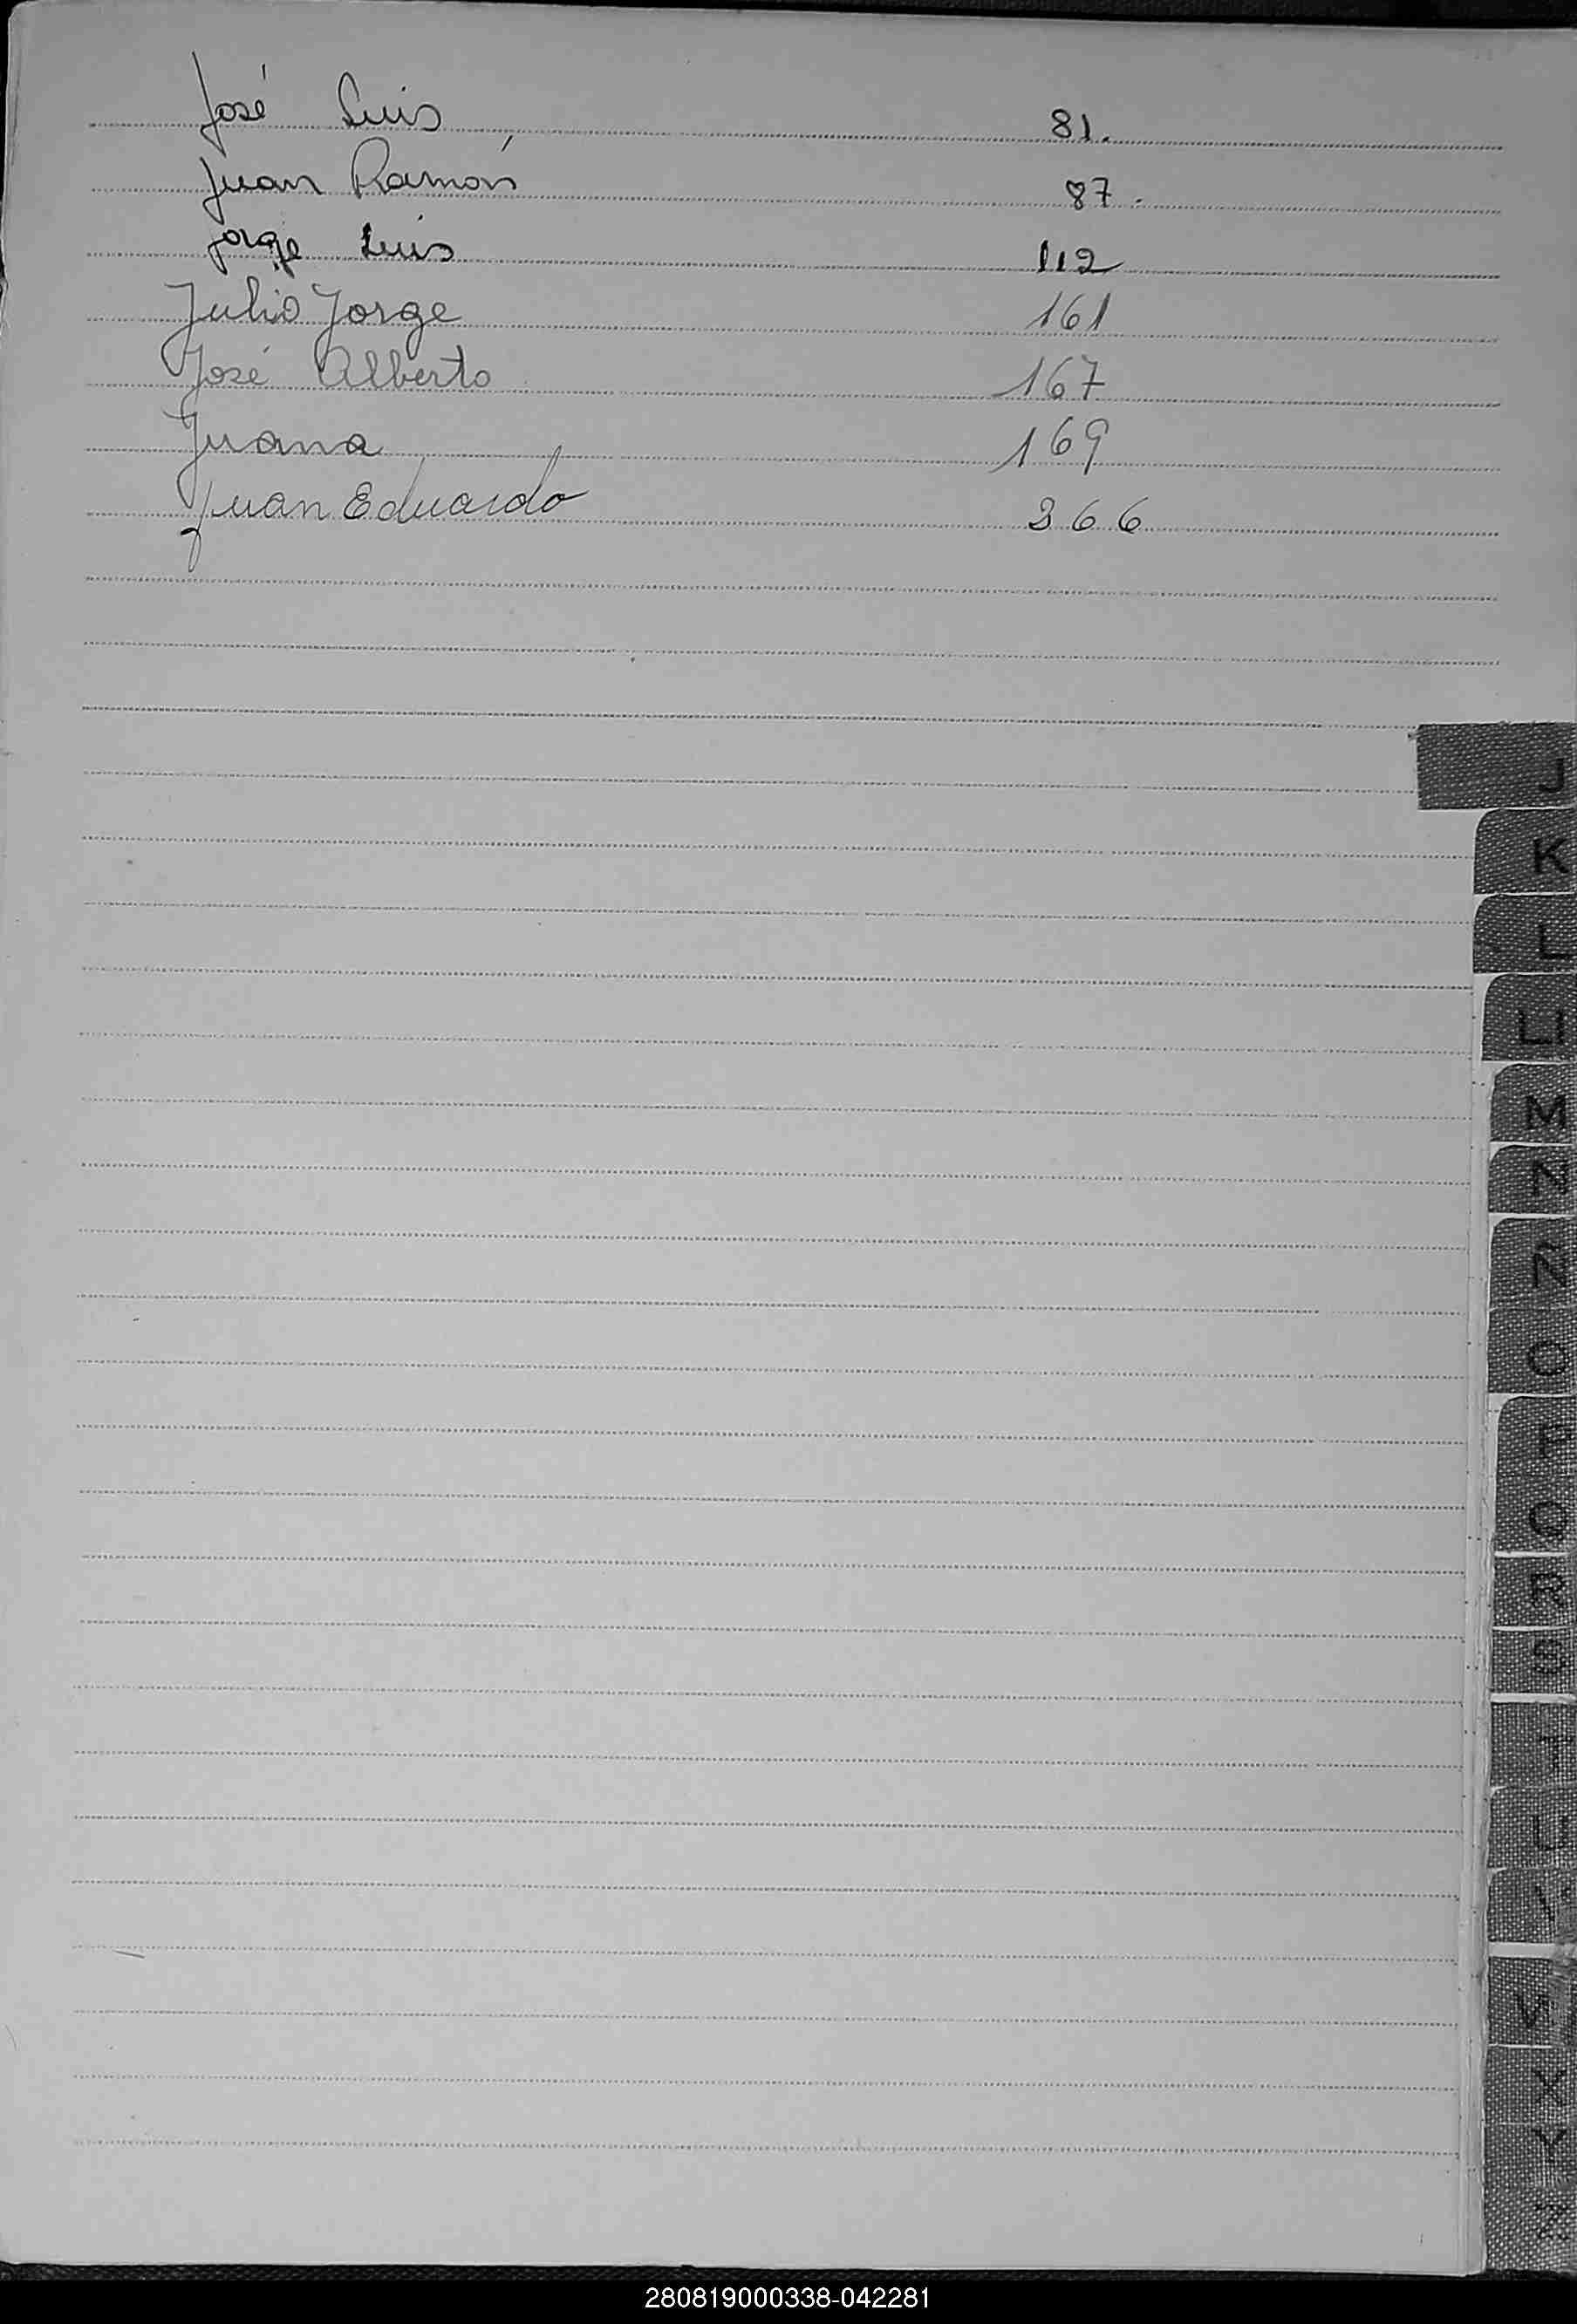 José Luis 81.
Juan Ramón 87.
Jorge Luis 112
Julio Jorge 161
José Alberto 167
Juana 169
Juan Eduardo 366
J
K
L
LL
M
N
Ñ
O
P
Q
R
S
T
U
V
W
X
Y
Z
280819000338-042281